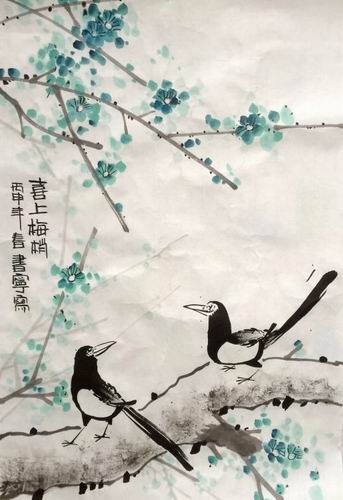 喜上梅梢
丙申年春書寧寫